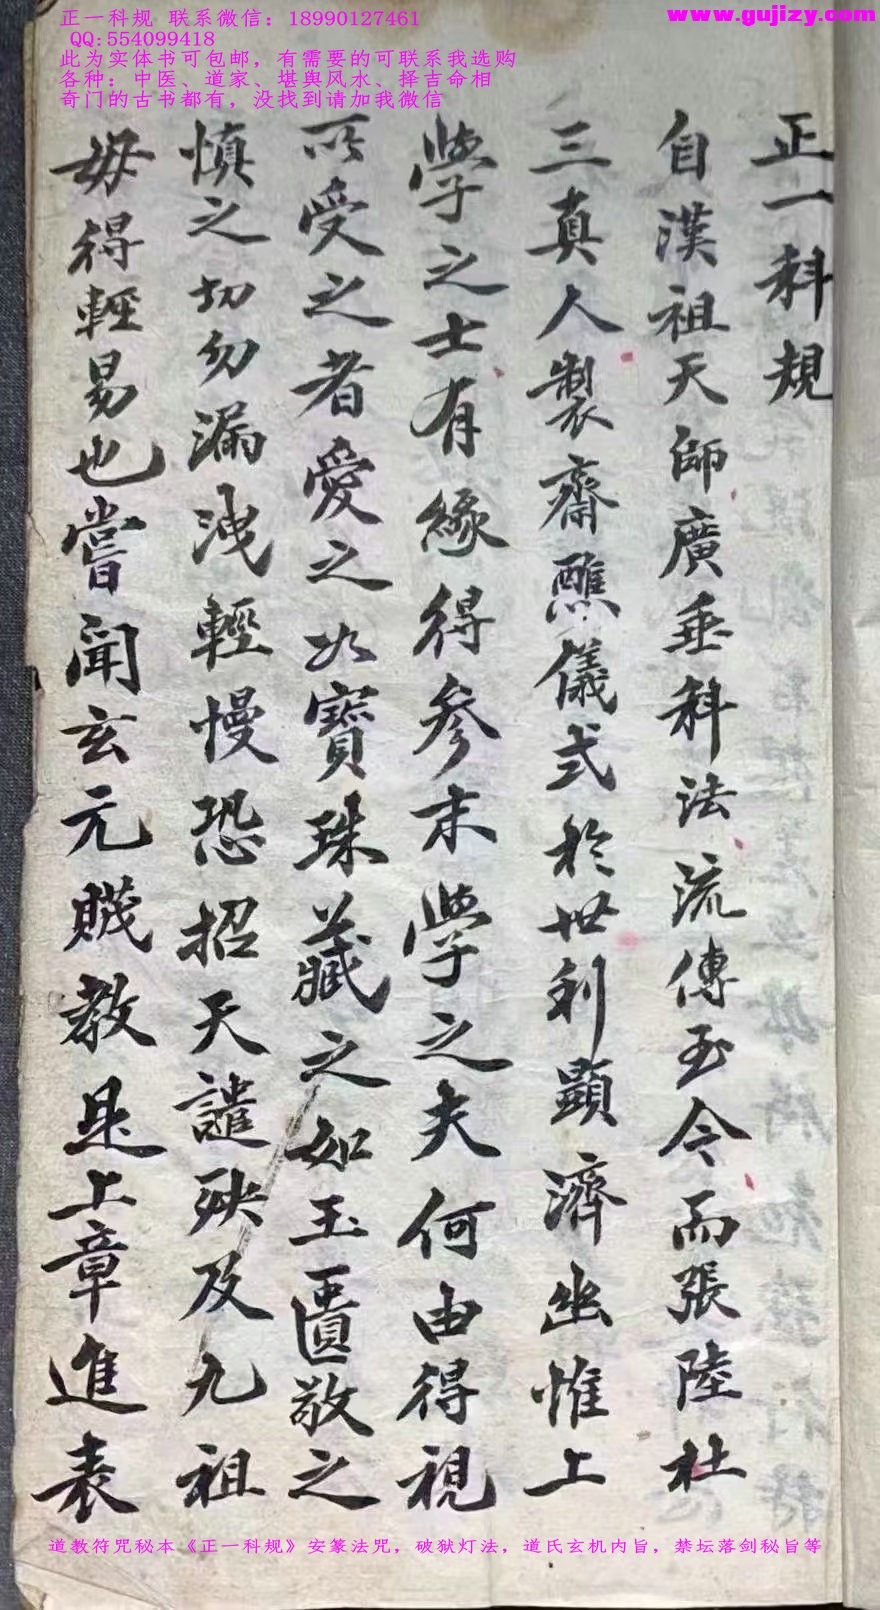 正一科规 联系微信：18990127461
QQ:554099418
此为实体书可包邮，有需要的可联系我选购
各种：中医、道家、堪舆风水、择吉命相
奇门的古书都有，没找到请加我微信
www.gujizy.com
正一科規
自漢祖天師廣垂科法流傳至今而張陸杜
三真人製齋醮儀式於世利顯濟幽惟上
學之士有緣得參末學之夫何由得視
所受之者愛之如寶珠藏之如玉匱敬之
慎之切勿漏洩輕慢恐招天譴殃及九祖
毋得輕易也嘗聞玄元教是上章進表
道教符咒秘本《正一科规》安篆法咒，破狱灯法，道氏玄机内旨，禁坛落剑秘旨等